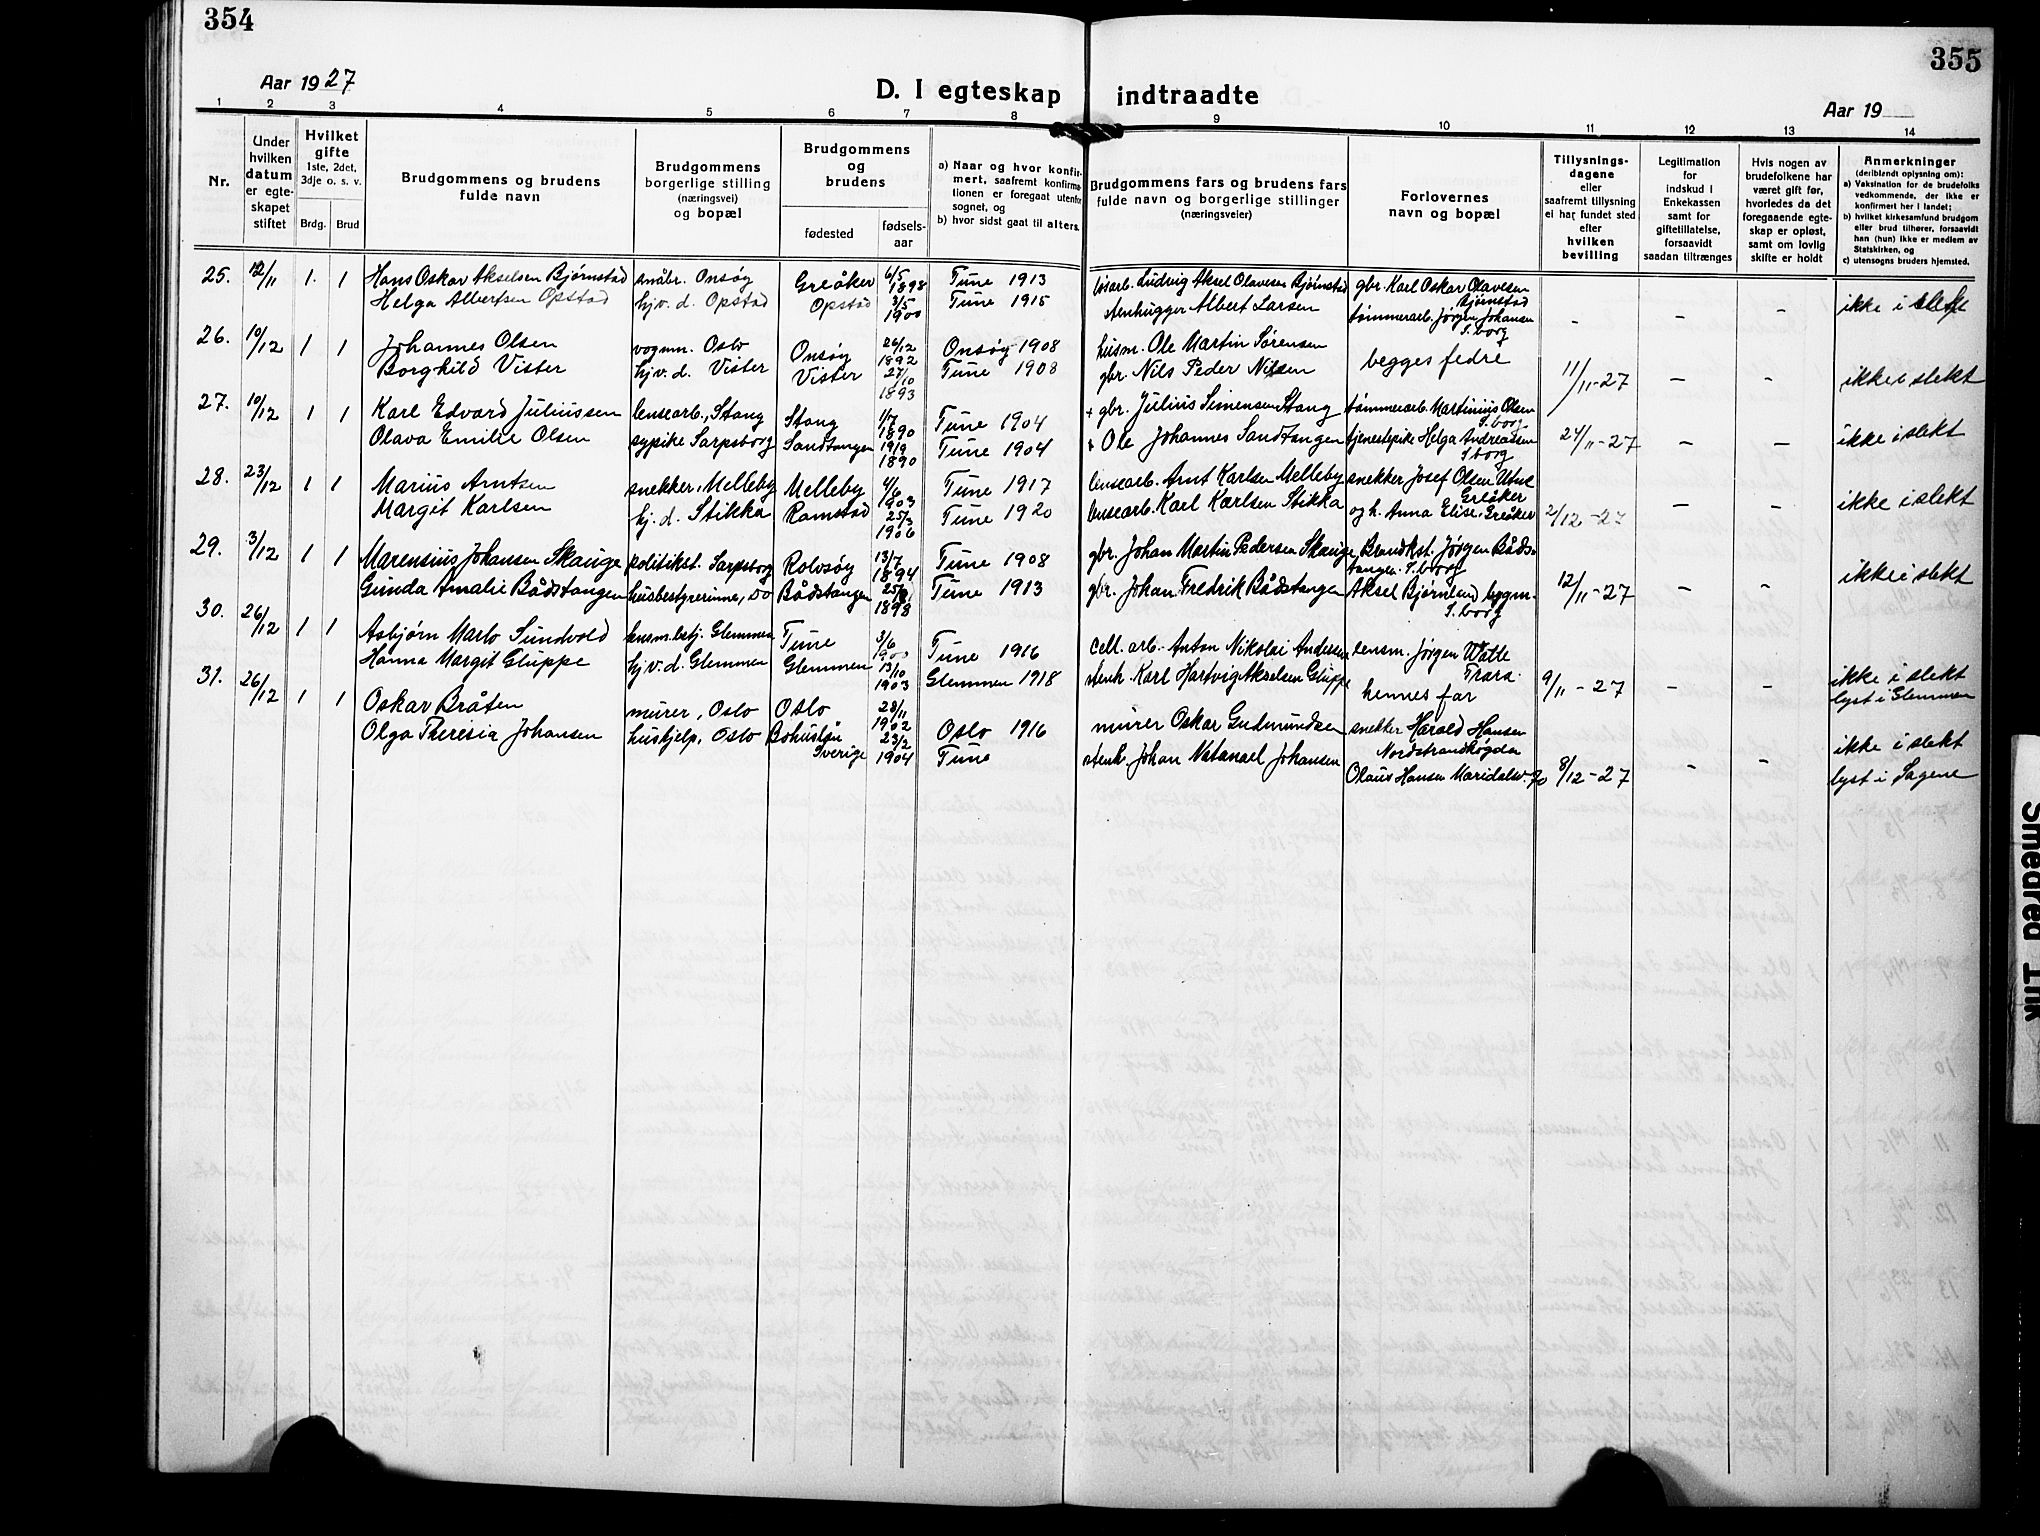 354
355
Aar 1927
D. I egteskap indtraadte
Aar 19
1 2 3 4 5 6 7 8 9 10 11 12 13 14
Nr.
Under hvilken datum er egte-skapet stiftet
Hvilket gifte 1ste, 2det, 3dje o. s. v.
Brdg. Brud
Brudgommens og brudens fulde navn
Brudgommens borgerlige stilling (næringsvei) og bopæl
Brudgommens og brudens
fødested
fødsels-aar
a) Naar og hvor konfir-mert, saafremt konfirma-tionen er foregaat utenfor sognet, og
b) hvor sidst gaat til alters.
Brudgommens fars og brudens fars fulde navn og borgerlige stillinger (næringsveier)
Forlovernes navn og bopæl
Tillysnings-dagene eller saafremt tillysning ei har fundet sted efter hvilken bevilling
Legitimation for indskud i Enkekassen samt for giftetillatelse, forsaavidt saadan tiltrænges
Hvis nogen av brudefolkene har været gift før, hvorledes da det foregaaende egte-skap er opløst, samt om lovlig skifte er holdt
Anmerkninger (deriblandt oplysning om):
a) Vaksination for de brudefolks vedkommende, der ikke er konfirmert her i landet;
b) hvilket kirkesamfund brudgom eller brud tilhører, forsaavidt han (hun) ikke er medlem av Statskirken, og
c) utensogns bruders hjemsted.
25. 12/11 1. 1 Hans Oskar Akselsen Bjørnstad småbr. Onsøy Greåker 6/5 1898 Tune 1913 løsarb. Ludvig Aksel Olavesen Bjørnstad gbr. Karl Oskar Olavesen Bjørnstad
Helga Albertsen Opstad hjv. d. Opstad Opstad 3/5 1900 Tune 1915 stenhugger Albert Larsen tømmerarb. Jørgen Johansen S.borg - - - ikke i slekt
26. 10/12 1 1 Johannes Olsen vognm. Oslo Onsøy 26/12 1892 Onsøy 1908 husm. Ole Martin Sørensen begges fedre
Borghild Vister hjv. d. Vister Vister 27/10 1893 Tune 1908 gbr. Nils Peder Nilsen 11/11-27 - - ikke i slekt
27. 10/12 1 1 Karl Edvard Juliussen lensearb., Stang Stang 1/7 1890 Tune 1904 + gbr. Julius Simensen Stang tømmerarb. Martinius Olsen S.borg
Olava Emilie Olsen sypike Sarpsborg Sandtangen 19/9 1890 Tune 1904 + Ole Johannes Sandtangen tjenestepike Helga Andreassen S.borg 24/11-27 - - ikke i slekt
28. 23/12 1 1 Marius Arntsen snekker, Melleby Melleby 4/6 1903 Tune 1917 lensearb. Arnt Karlsen Melleby snekker Josef Olsen Utne Greåker
Margit Karlsen hj. d. Stikka Ramstad 25/3 1906 Tune 1920 lensearb. Karl Karlsen Stikka og h. Anna Elise, Greåker 2/12-27 - - ikke i slekt
29. 3/12 1 1 Marensius Johansen Skauge politikst. Sarpsborg Rolvsøy 13/7 1894 Tune 1908 gbr. Johan Martin Pedersen Skauge Brandkst. Jørgen Båds-tangen. S.borg
Gunda Amalie Bådstangen husbestyrerinne, do Bådstangen 1898 Tune 1913 gbr. Johan Fredrik Bådstangen Aksel Bjørnland bygm. S.borg 12/11-27 - - ikke i slekt
30. 26/12 1 1 Asbjørn Marlo Sundvold lensm.betj. Glemmen Tune 3/6 Tune 1916 cell. arb. Anton Nikolai Andersen lensm. Jørgen Watte Trara
Hanna Margit Gluppe hjv. d. Glemmen Glemmen 13/10 1903 Glemmen 1918 stenh. Karl Hartvig Akselsen Gluppe hennes far 9/11-27 - - ikke i slekt lyst i Glemmen
31. 26/12 1 1 Oskar Bråten murer, Oslo Oslo 28/11 1902 Oslo 1916 murer Oskar Gudmundsen snekker Harald Hansen Nordstrandhøgda
Olga Theresia Johansen hushjelp, Oslo Bohuslän Sverige 23/2 1904 Tune stenh. Johan Natanael Johansen Olaus Hansen Maridalsv. 70 8/12-27 - - ikke i slekt lyst i Sagene
Smeared Ink